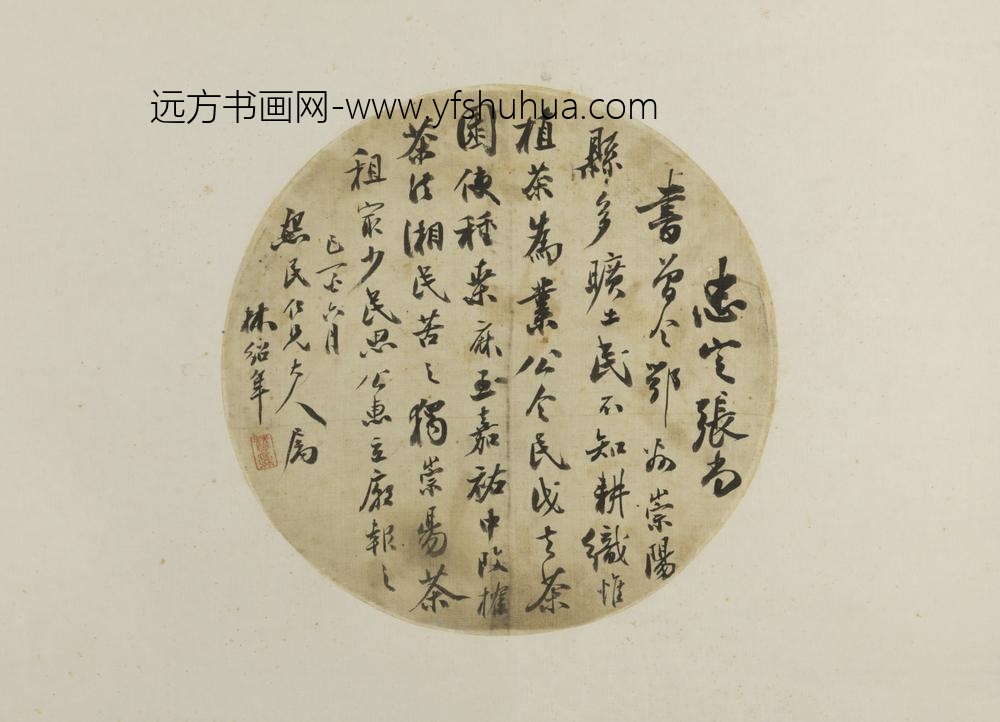 远方书画网-www.yfshuhua.com
忠定張尚
書曾令鄂州崇陽
縣多曠土民不知耕織惟
植茶為業公令民伐去茶
園使種桑麻至嘉祐中改榷
茶法湘民苦之獨崇陽茶
租最少民思公惠立廟報之
六月
愙民仁兄大人屬
林紹年